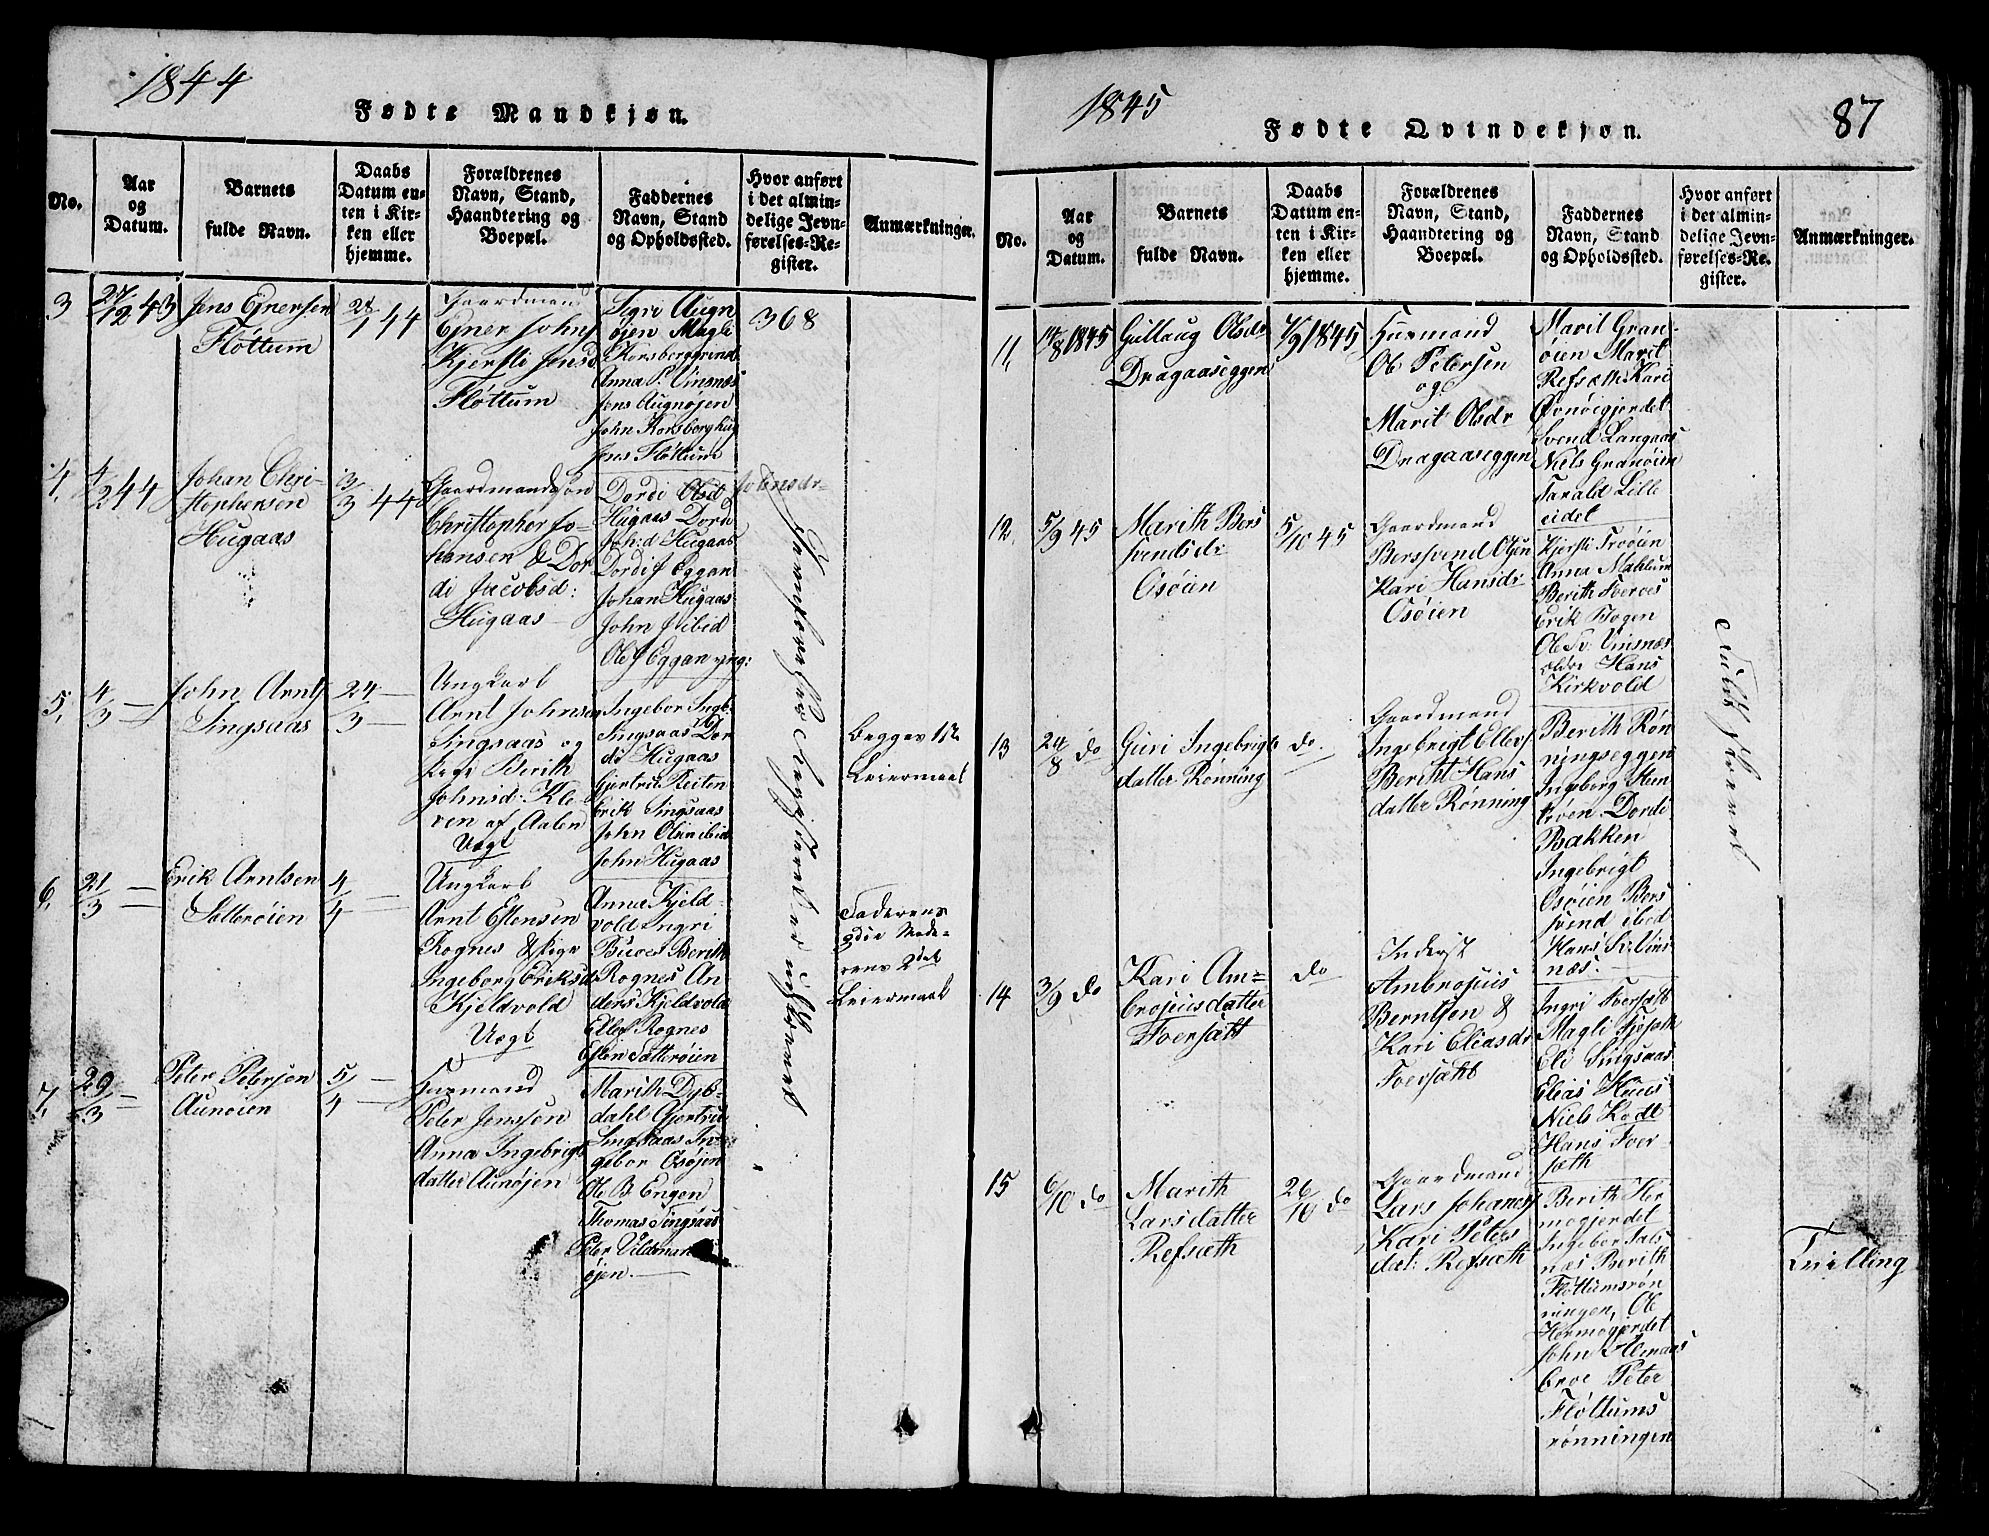 1844
Fødte Mandkjøn.
No.
Aar
og
Datum.
Barnets
fulde Navn.
Daabs
Datum en-
ten i Kir-
ken eller
hjemme.
Forældrenes
Navn, Stand,
Haandtering og
Boepæl.
Faddernes
Navn, Stand
og Opholdssted.
Hvor anført
i det almin-
delige Jevn-
førelses-Re-
gister.
Anmærkninger.
3
27/12 43
Jens Ejnersen
Fløttum
28/1 44
Gaardmand
Ejner Johns
Kjersti Jensd
Fløttum
Sigri Augn
øjen Magli
Korsberggrind
Anna P. Vinsnes
Jens Augnøjen
John Korsberghug
Jens Fløttum
368
4,
4/2 44
Johan Chri-
stophersen
Hugaas
3/3 44
Gaardmandssøn
Christopher Jo-
hansen & Dor
di Jacobsd:
Hugaas
Dordi Olsd
Hugaas Dordi
Joh:d Hugaas
Dordi J Eggan
Johan Hugaas
John J ibid
Ole J Eggan yng:
Johnsdr
5,
4/3 —
John Arntz
Singsaas
24/3 —
Ungkarl
Arnt Johnsen
Singsaas og
pige Berith
Johnsd: Kle-
ven af Aalen
Uægt
Ingebor Ingb:
Singsaas Dor
di Hugaas
Gjertrud Reiten
Erik Singsaas
John Olsen ibid
John Hugaas
Begges 1ste
Leiermaal
6,
21/3 —
Erik Arntsen
Sætterøien
4/4 —
Ungkarl
Arnt Estensen
Rognes & pige
Ingeborg Eriksd
Kjeldvold
Uægt
Anne Kjeld-
vold Ingri
Berith
Rognes An-
ders Kjeldvold
Ellef Rognes
Esten Sætterøien
Faderens
3die Mode-
rens 2det
Leiermaal
7,
29/3 —
Peter Petersen
Aunøien
5/4 —
Huusmand
Peter Jenssen
Anna Ingebrigt
datter Aunøjen
Marith Dyb-
dahl Gjertrud
Singsaas In-
gebor Osøjen
Ole B. Engen
Thomas Singsaas
Peter Vildman
øjen.
Jevnførelses Registeret er udskrevet
1845
Fødte Qvindekjøn.
87
No.
Aar
og
Datum.
Barnets
fulde Navn.
Daabs
Datum en-
ten i Kir-
ken eller
hjemme.
Forældrenes
Navn, Stand,
Haandtering og
Boepæl.
Faddernes
Navn, Stand
og Opholdssted.
Hvor anført
i det almin-
delige Jevn-
førelses-Re-
gister.
Anmærkninger.
11,
14/8 1845
Gullaug Olsdr
Dragaaseggen
7/9 1845
Huusmand
Ole Petersen
og
Marit Olsdr
Dragaaseggen
Marit Gran-
øien Marit
Refsæth Kari
Øvnøigjerdet
Svend Langaas
Niels Granøien
Tarald Lille
eidet
12,
5/9 45
Marith Bers
svendsdr
Osøien
5/10 45
Gaardmand
Bersvend Olsen
Kari Hansdr
Osøien
Kjersti Troøien
Anna Mahlum
Berith Tveraas
Erik Bogen
Ole Sv. Vinsnæs
ældre Hans
Kirkvold
13
24/8 do
Guri Ingebrigts
datter Rønning
do.
Gaardmand
Ingebrigt Ellefs
Berith Hans
datter Rønning
Berith Røn-
ningseggen
Ingeborg Hen-
trøen Dordi
Bakken
Ingebrigt
Osøien Bers
svend ibed
Hans S. Vins
næs.
14
3/9 do
Kari Am-
brosiusdatter
Tversæth
do
Inderst
Ambrosius
Berntsen &
Kari Eliasdr
Tversæth
Ingri Tversæth
Magli Sjøsæth
Eli Singsaas
Elias Huus
Niels Kodl
Hans Tver-
sæth
15
6/10 do
Marith
Larsdatter
Refsæth
26/10 do
Gaardmand
Lars Johanes
Kari Peters
dat: Refsæth
Berith Her
mogjerdet
Ingebor Tals
næs Berith
Fløttumsrøn
ningen, Ole
Hermogjerdet
John Almaas
broe Peter
Fløttums
rønningen
Tvilling